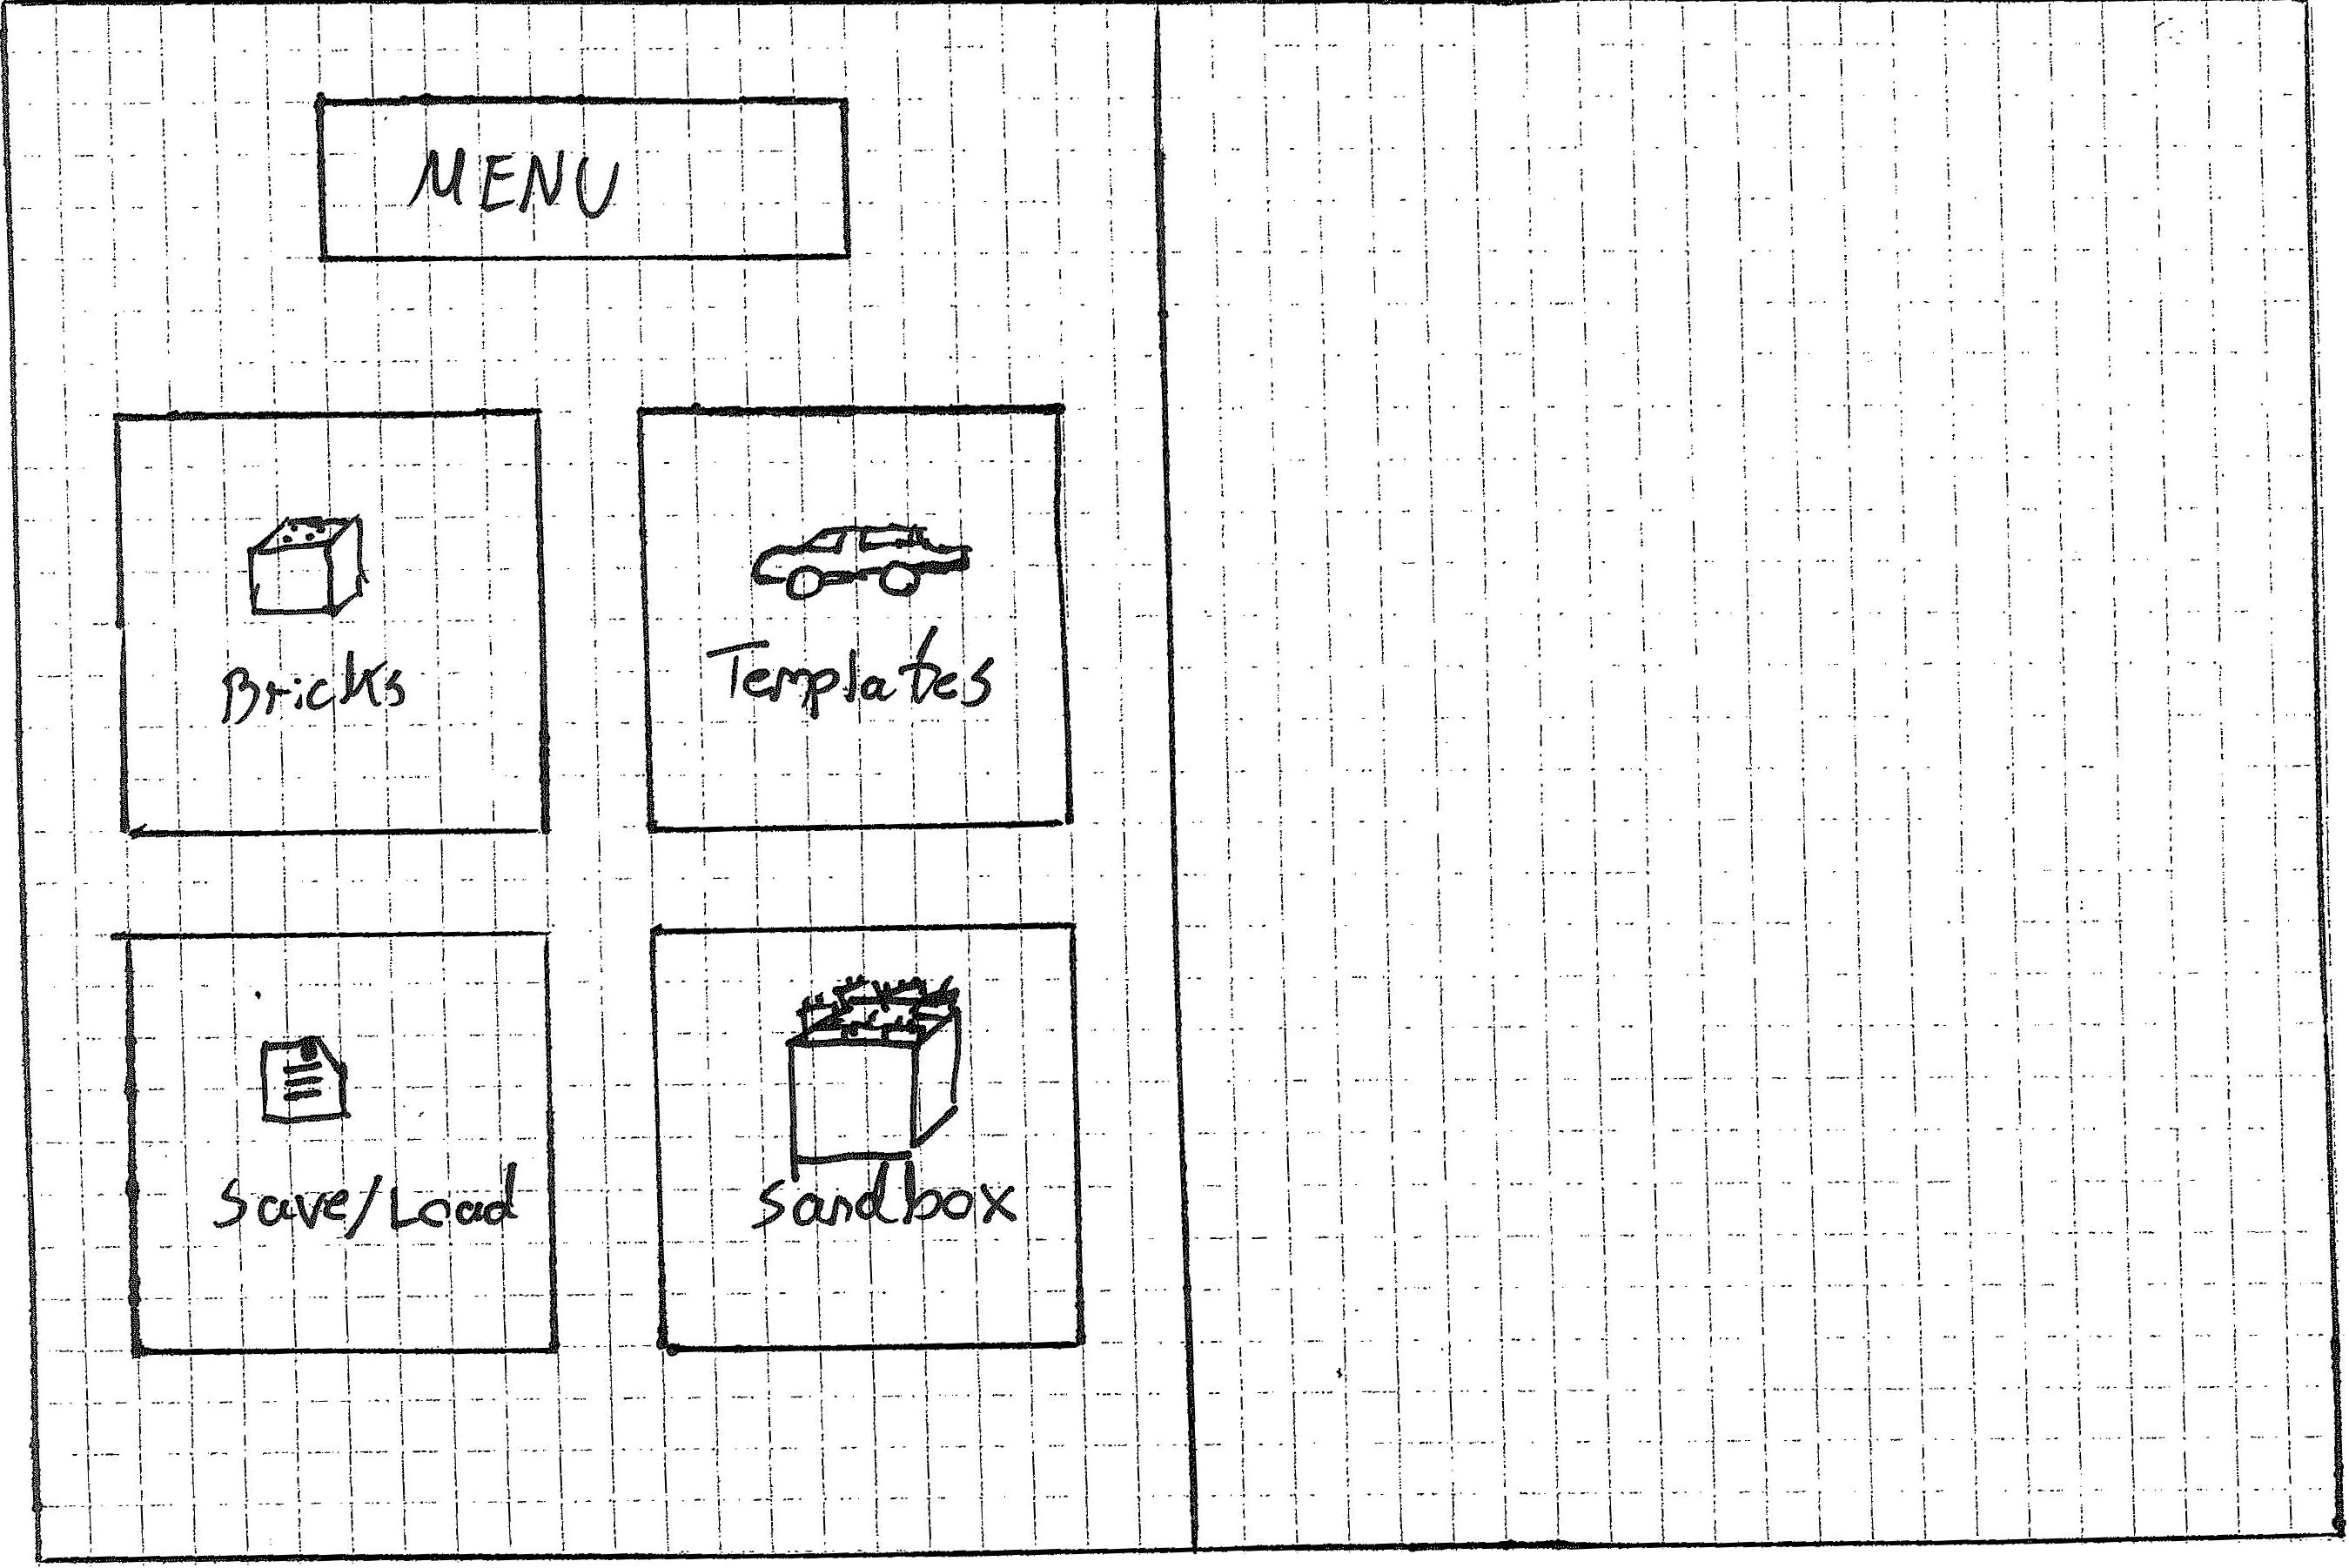 MENU
Bricks
Templates
Save/Load
Sandbox